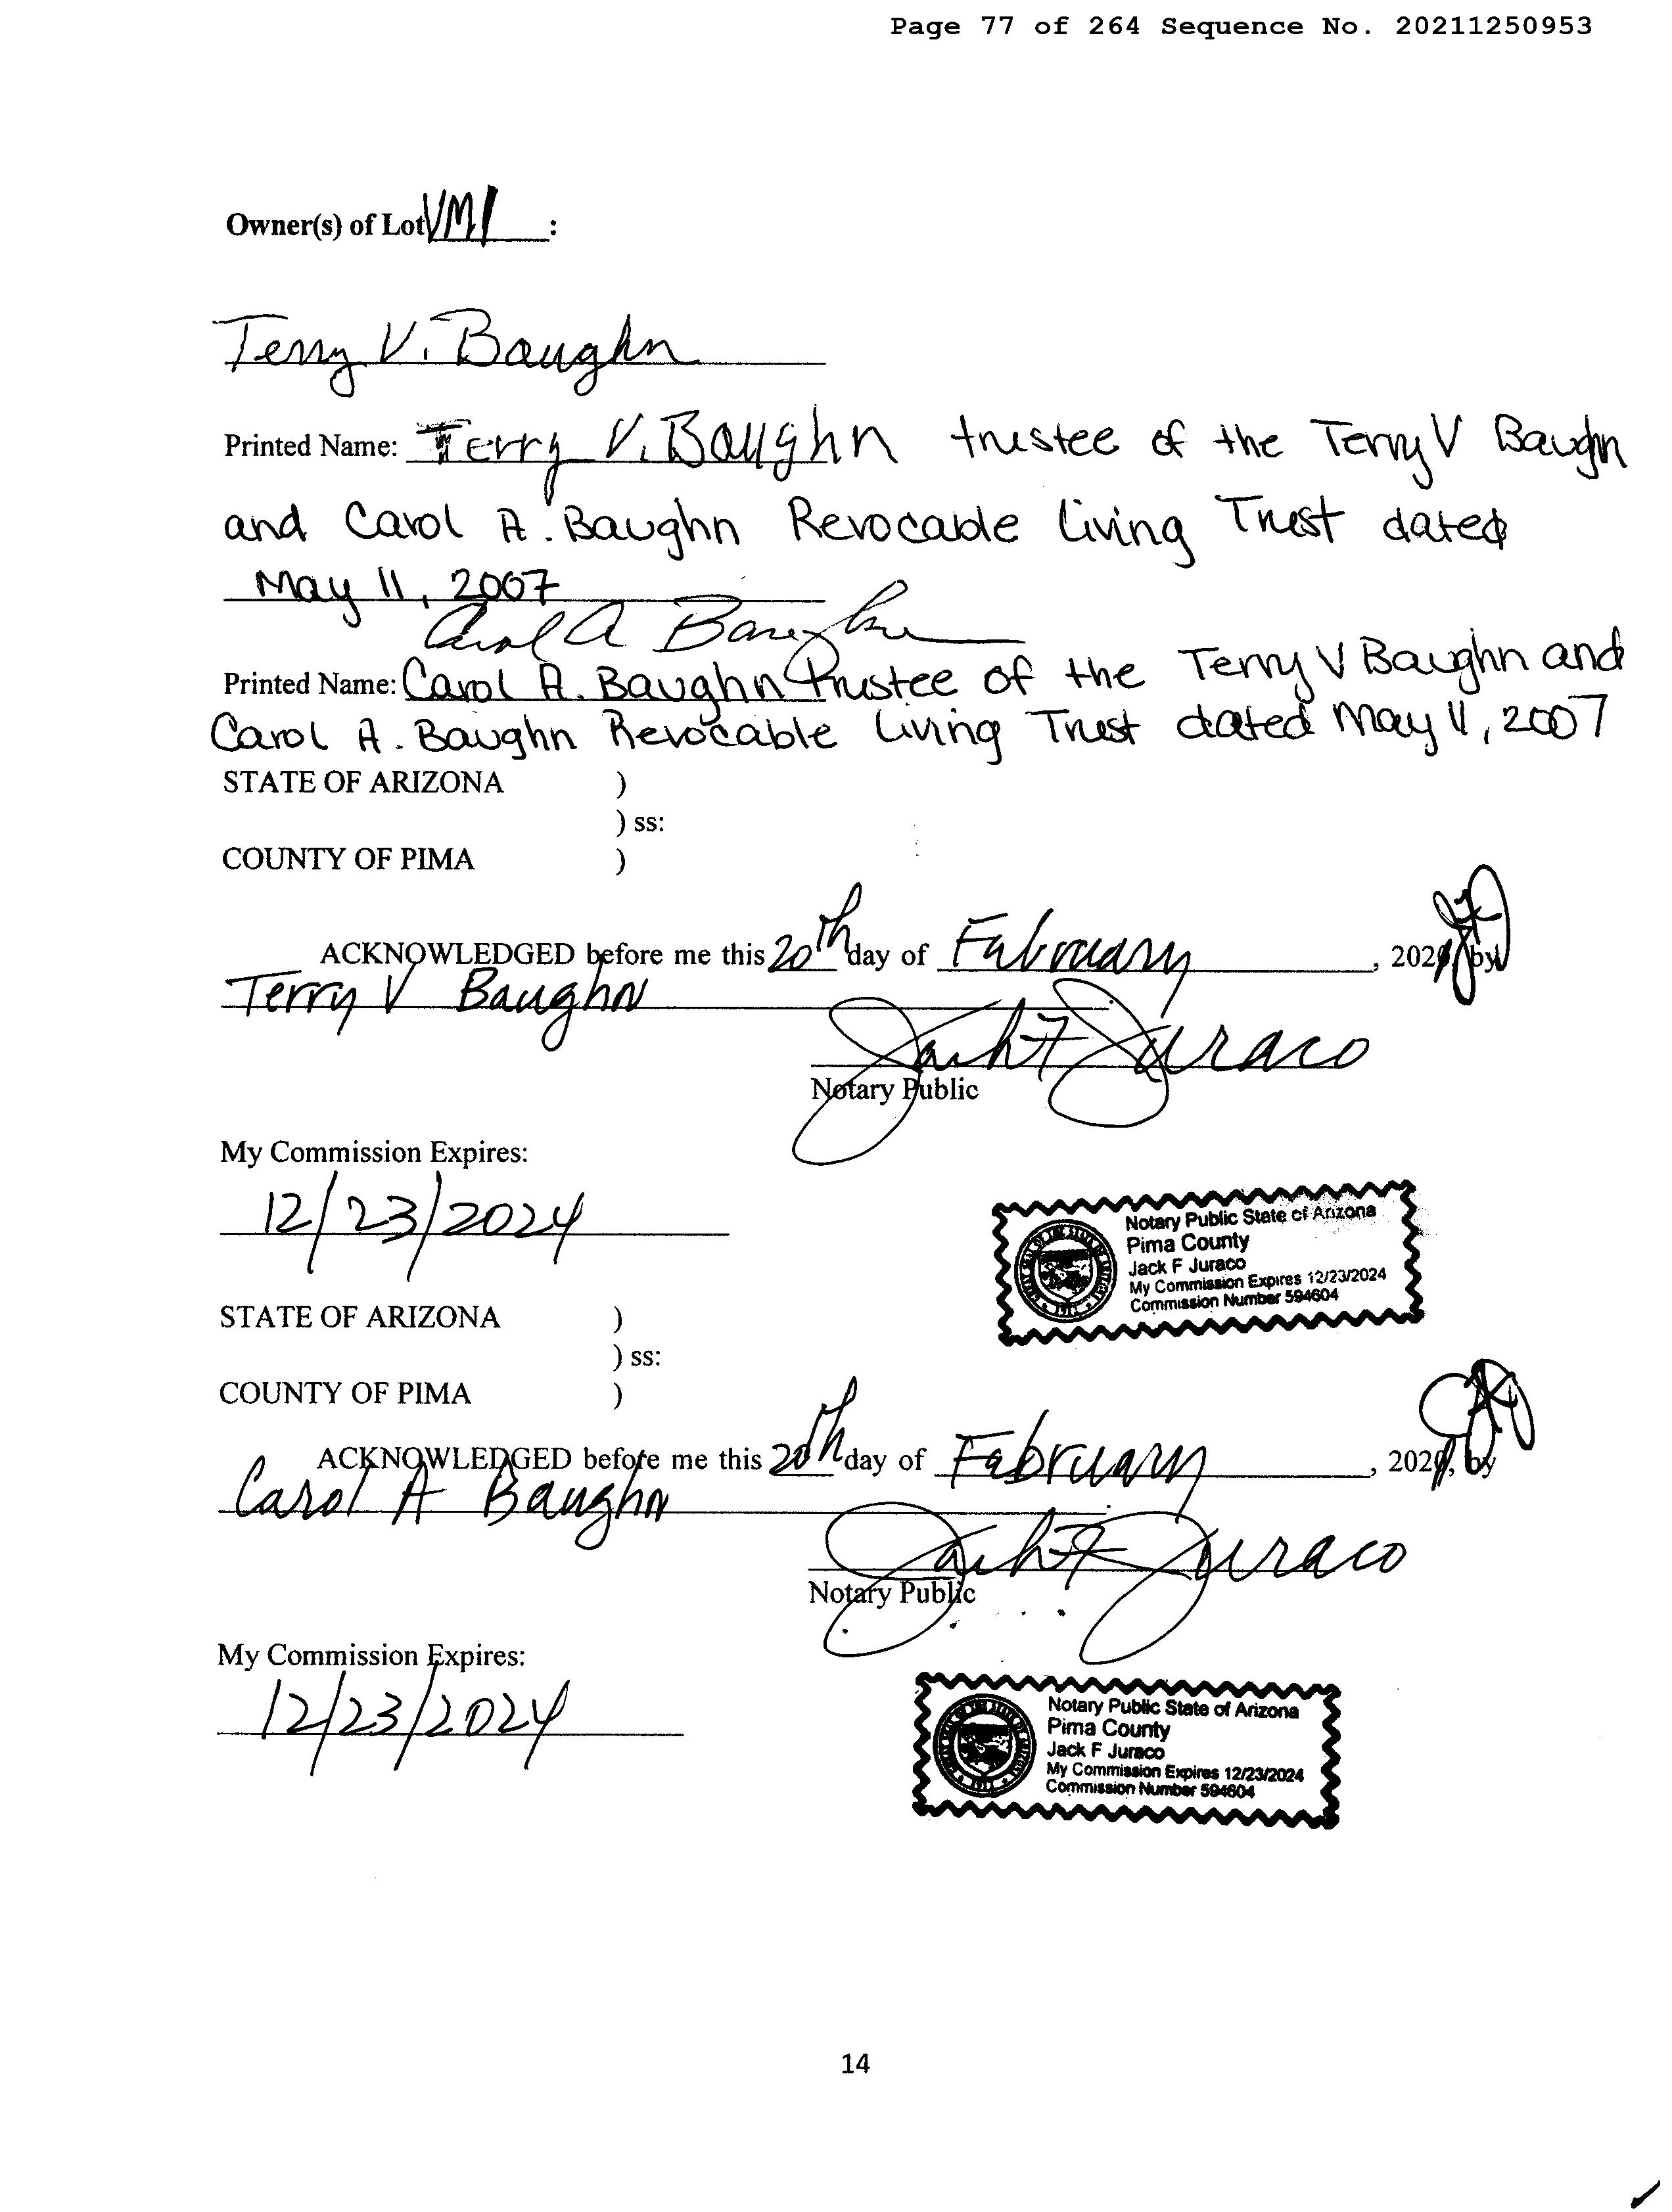 Page 77 of 264 Sequence No. 20211250953
Owner(s) of Lot VM1 :
Terry V. Baughn
Printed Name: Terry V. Baughn trustee of the Terry V Baughn
and Carol A. Baughn Revocable Living Trust dated
May 11, 2007
Carol A Baughn
Printed Name: Carol A. Baughn trustee of the Terry V Baughn and
Carol A. Baughn Revocable Living Trust dated May 11, 2007
STATE OF ARIZONA )
) ss:
COUNTY OF PIMA )
ACKNOWLEDGED before me this 20th day of February, 202 by
Terry V Baughn
Jack F Juraco
Notary Public
My Commission Expires:
12/23/2024
Notary Public State of Arizona
Pima County
Jack F Juraco
My Commission Expires 12/23/2024
Commission Number 594604
STATE OF ARIZONA )
) ss:
COUNTY OF PIMA )
ACKNOWLEDGED before me this 20th day of February, 202 , by
Carol A Baughn
Jack F Juraco
Notary Public
My Commission Expires:
12/23/2024
Notary Public State of Arizona
Pima County
Jack F Juraco
My Commission Expires 12/23/2024
Commission Number 594604
14